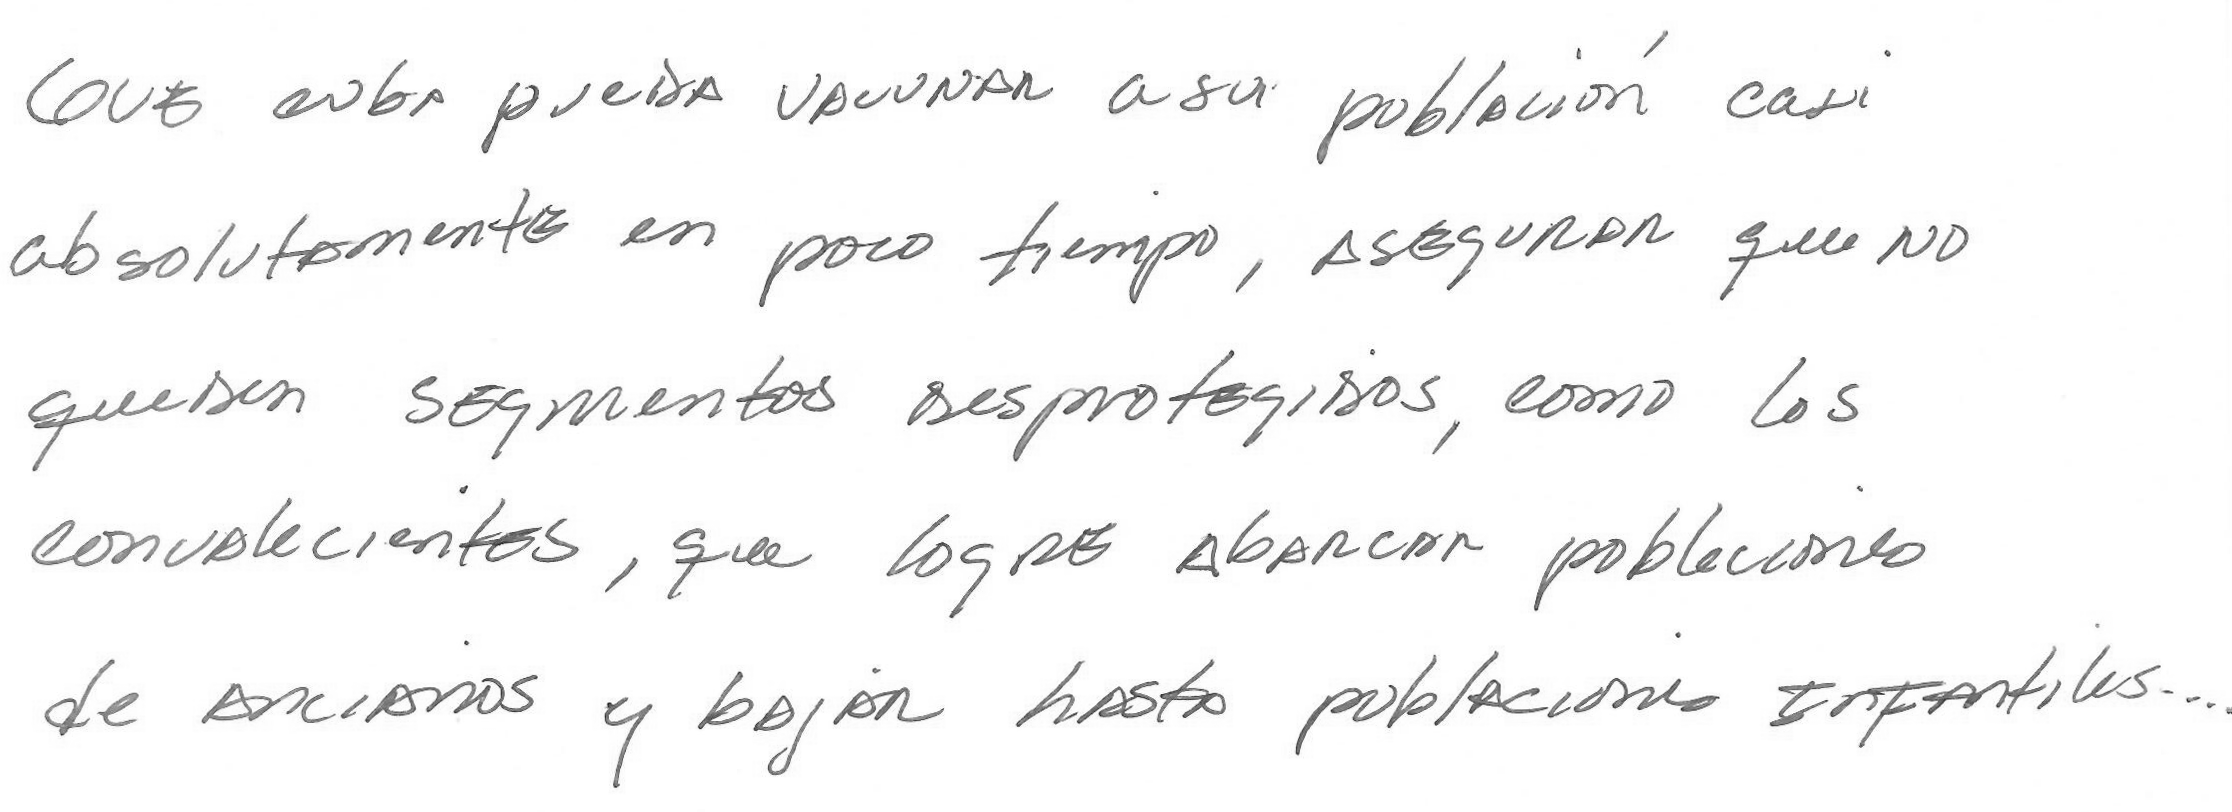 Que cuba pueda vacunar a su población casi
absolutamente en poco tiempo, asegurar que no
queden segmentos desprotegidos, como los
convalecientes, que logre abarcar poblaciones
de ancianos y bajar hasta poblaciones infantiles...